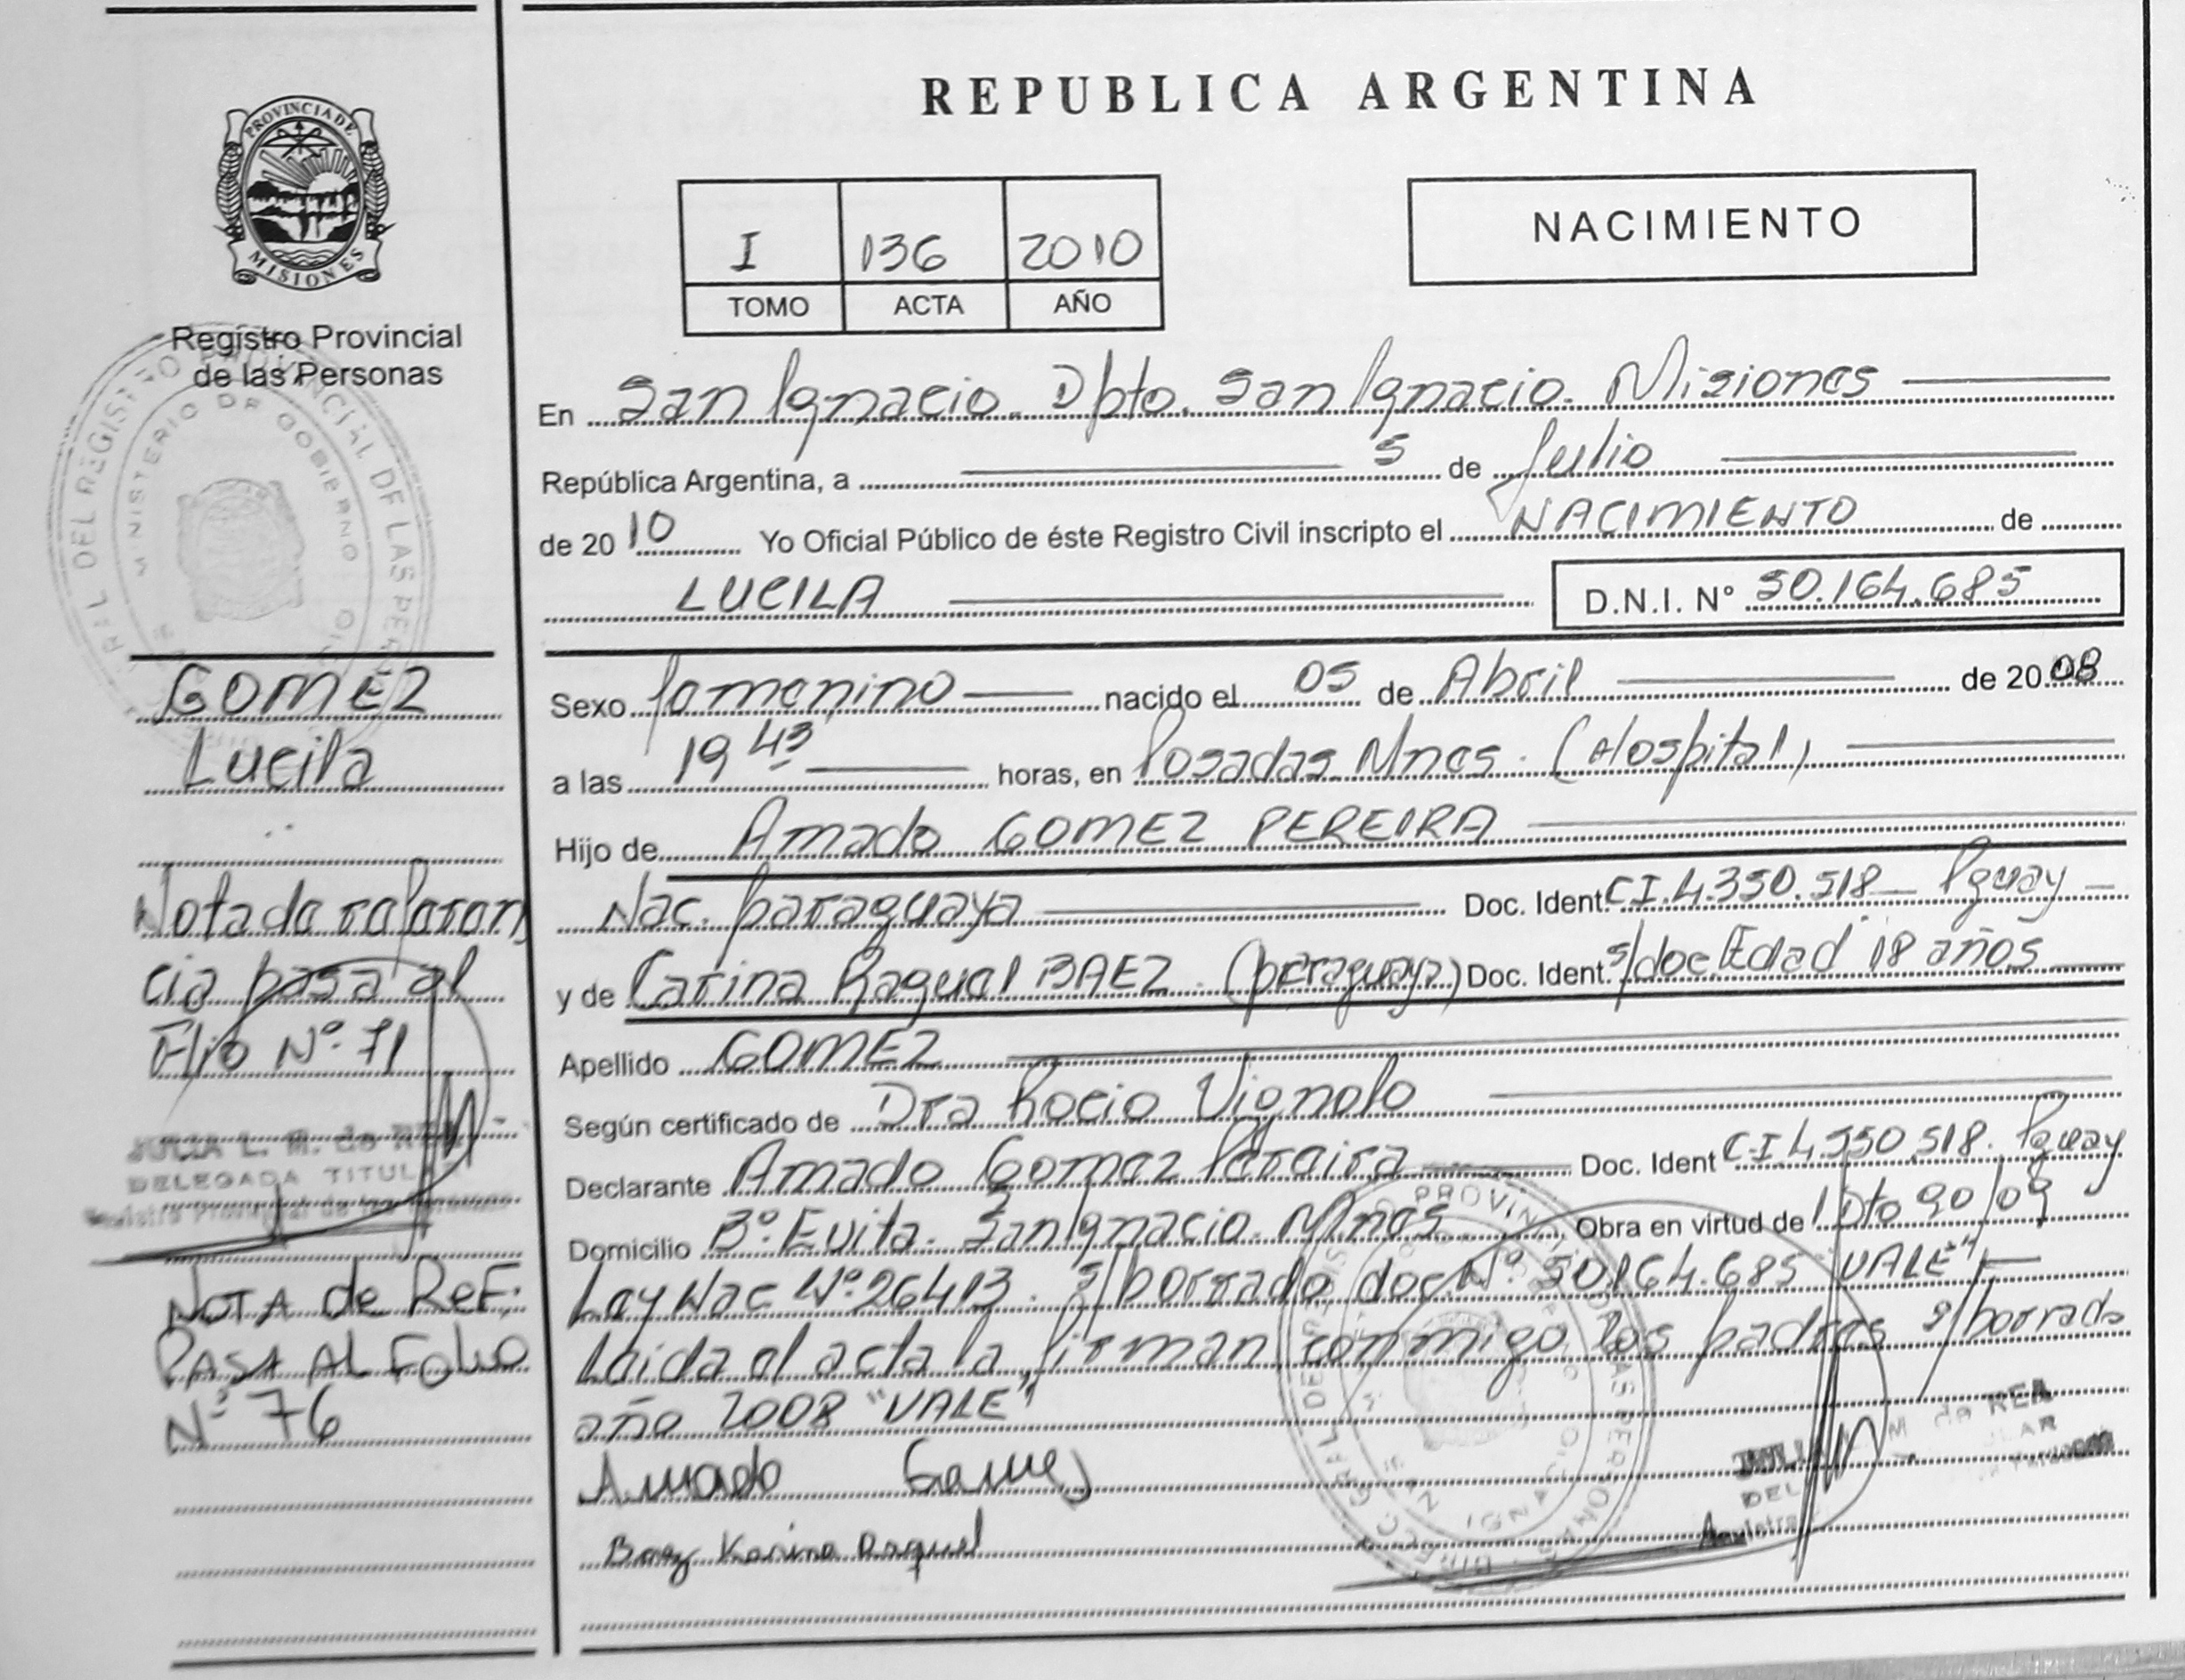 REPUBLICA ARGENTINA
PROVINCIA DE
MISIONES
Registro Provincial
de las Personas
I 136 2010
TOMO ACTA AÑO
NACIMIENTO
En San Ignacio. Dpto. San Ignacio. Misiones
República Argentina, a 5 de Julio
de 2010 Yo Oficial Público de éste Registro Civil inscripto el NACIMIENTO de
LUCILA D.N.I. N° 50.164.685
Sexo femenino nacido el 05 de Abril de 2008
a las 19 43 horas, en Posadas Mnes. (Hospital)
Hijo de Amado GOMEZ PEREIRA
Nac. paraguaya Doc. Ident. CI.4.350.518 Pguay
y de Carina Raquel BAEZ. (paraguaya) Doc. Ident. s/doc. Edad 18 años
Apellido GOMEZ
Según certificado de Dra Rocio Vignolo
Declarante Amado Gomez Pereira Doc. Ident CI 4.350.518. Pguay
Domicilio B° Evita. San Ignacio. Mnes Obra en virtud de Dto 90/09
Ley Nac N° 26413. s/borrado doc. N° 50.164.685 "VALE"
Leida el acta la firman conmigo los padres s/borrado
año 2008 "VALE"
Amado Gomez
Baez Karina Raquel
GOMEZ
Lucila
Nota de referen
cia pasa al
Flio N° 71
JULIA L. M. de REA
DELEGADA TITULAR
Registro Provincial de las Personas
NOTA de REF:
PASA AL Folio
N° 76